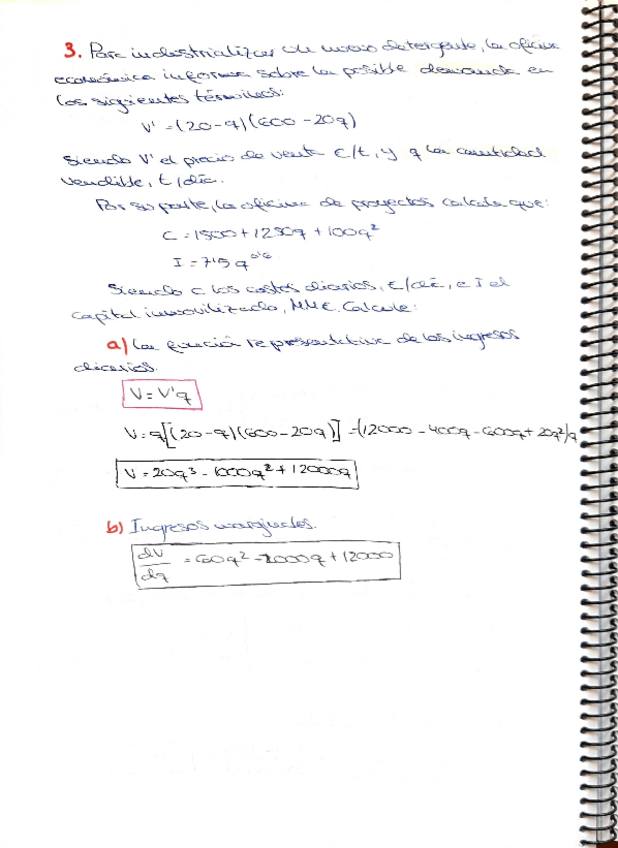 3. Para industrializar un nuevo detergente, la oficina
económica informa sobre la posible demanda en
los siguientes términos:
V' = (20-q)(600-20q)
Siendo V' el precio de venta €/t, y q la cantidad
vendible, t/día.
Por su parte, la oficina de proyectos calcula que:
C = 1500 + 1250q + 100q²
I = 7'15 q^0'6
Siendo C los costos diarios, €/día, e I el
capital inmovilizado, MM€. Calcule:
a) La función representativa de los ingresos
diarios.
V = V'q
V = q[(20-q)(600-20q)] = (12000 - 400q - 600q + 20q²)q
V = 20q³ - 1000q² + 12000q
b) Ingresos marginales.
dV/dq = 60q² - 2000q + 12000